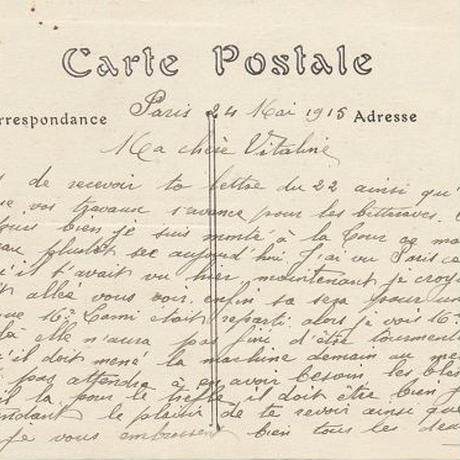 Carte Postale
rrespondance Paris 24 Mai 1915 Adresse
Ma chère Vitaline
de recevoir ta lettre du 22 ainsi qu'
vos travaux s'avance pour les betteraves.
bien je suis monté à la Tour ce ma
plutot sec aujourd'hui. J'ai vu
i'il t'avait vu hier maintenant je croya
t allée vous voir enfin sa sera pour un
que Mr Cami était reparti alors je vois Mr
là elle n'aura pas fini d'être tourmenté
'il doit mené la machine demain au me
pas attendre à en avoir besoins les blés
la pour le trefle il doit être bien
endant le plaisir de te revoir ainsi que
je vous embrassent bien tous les deu